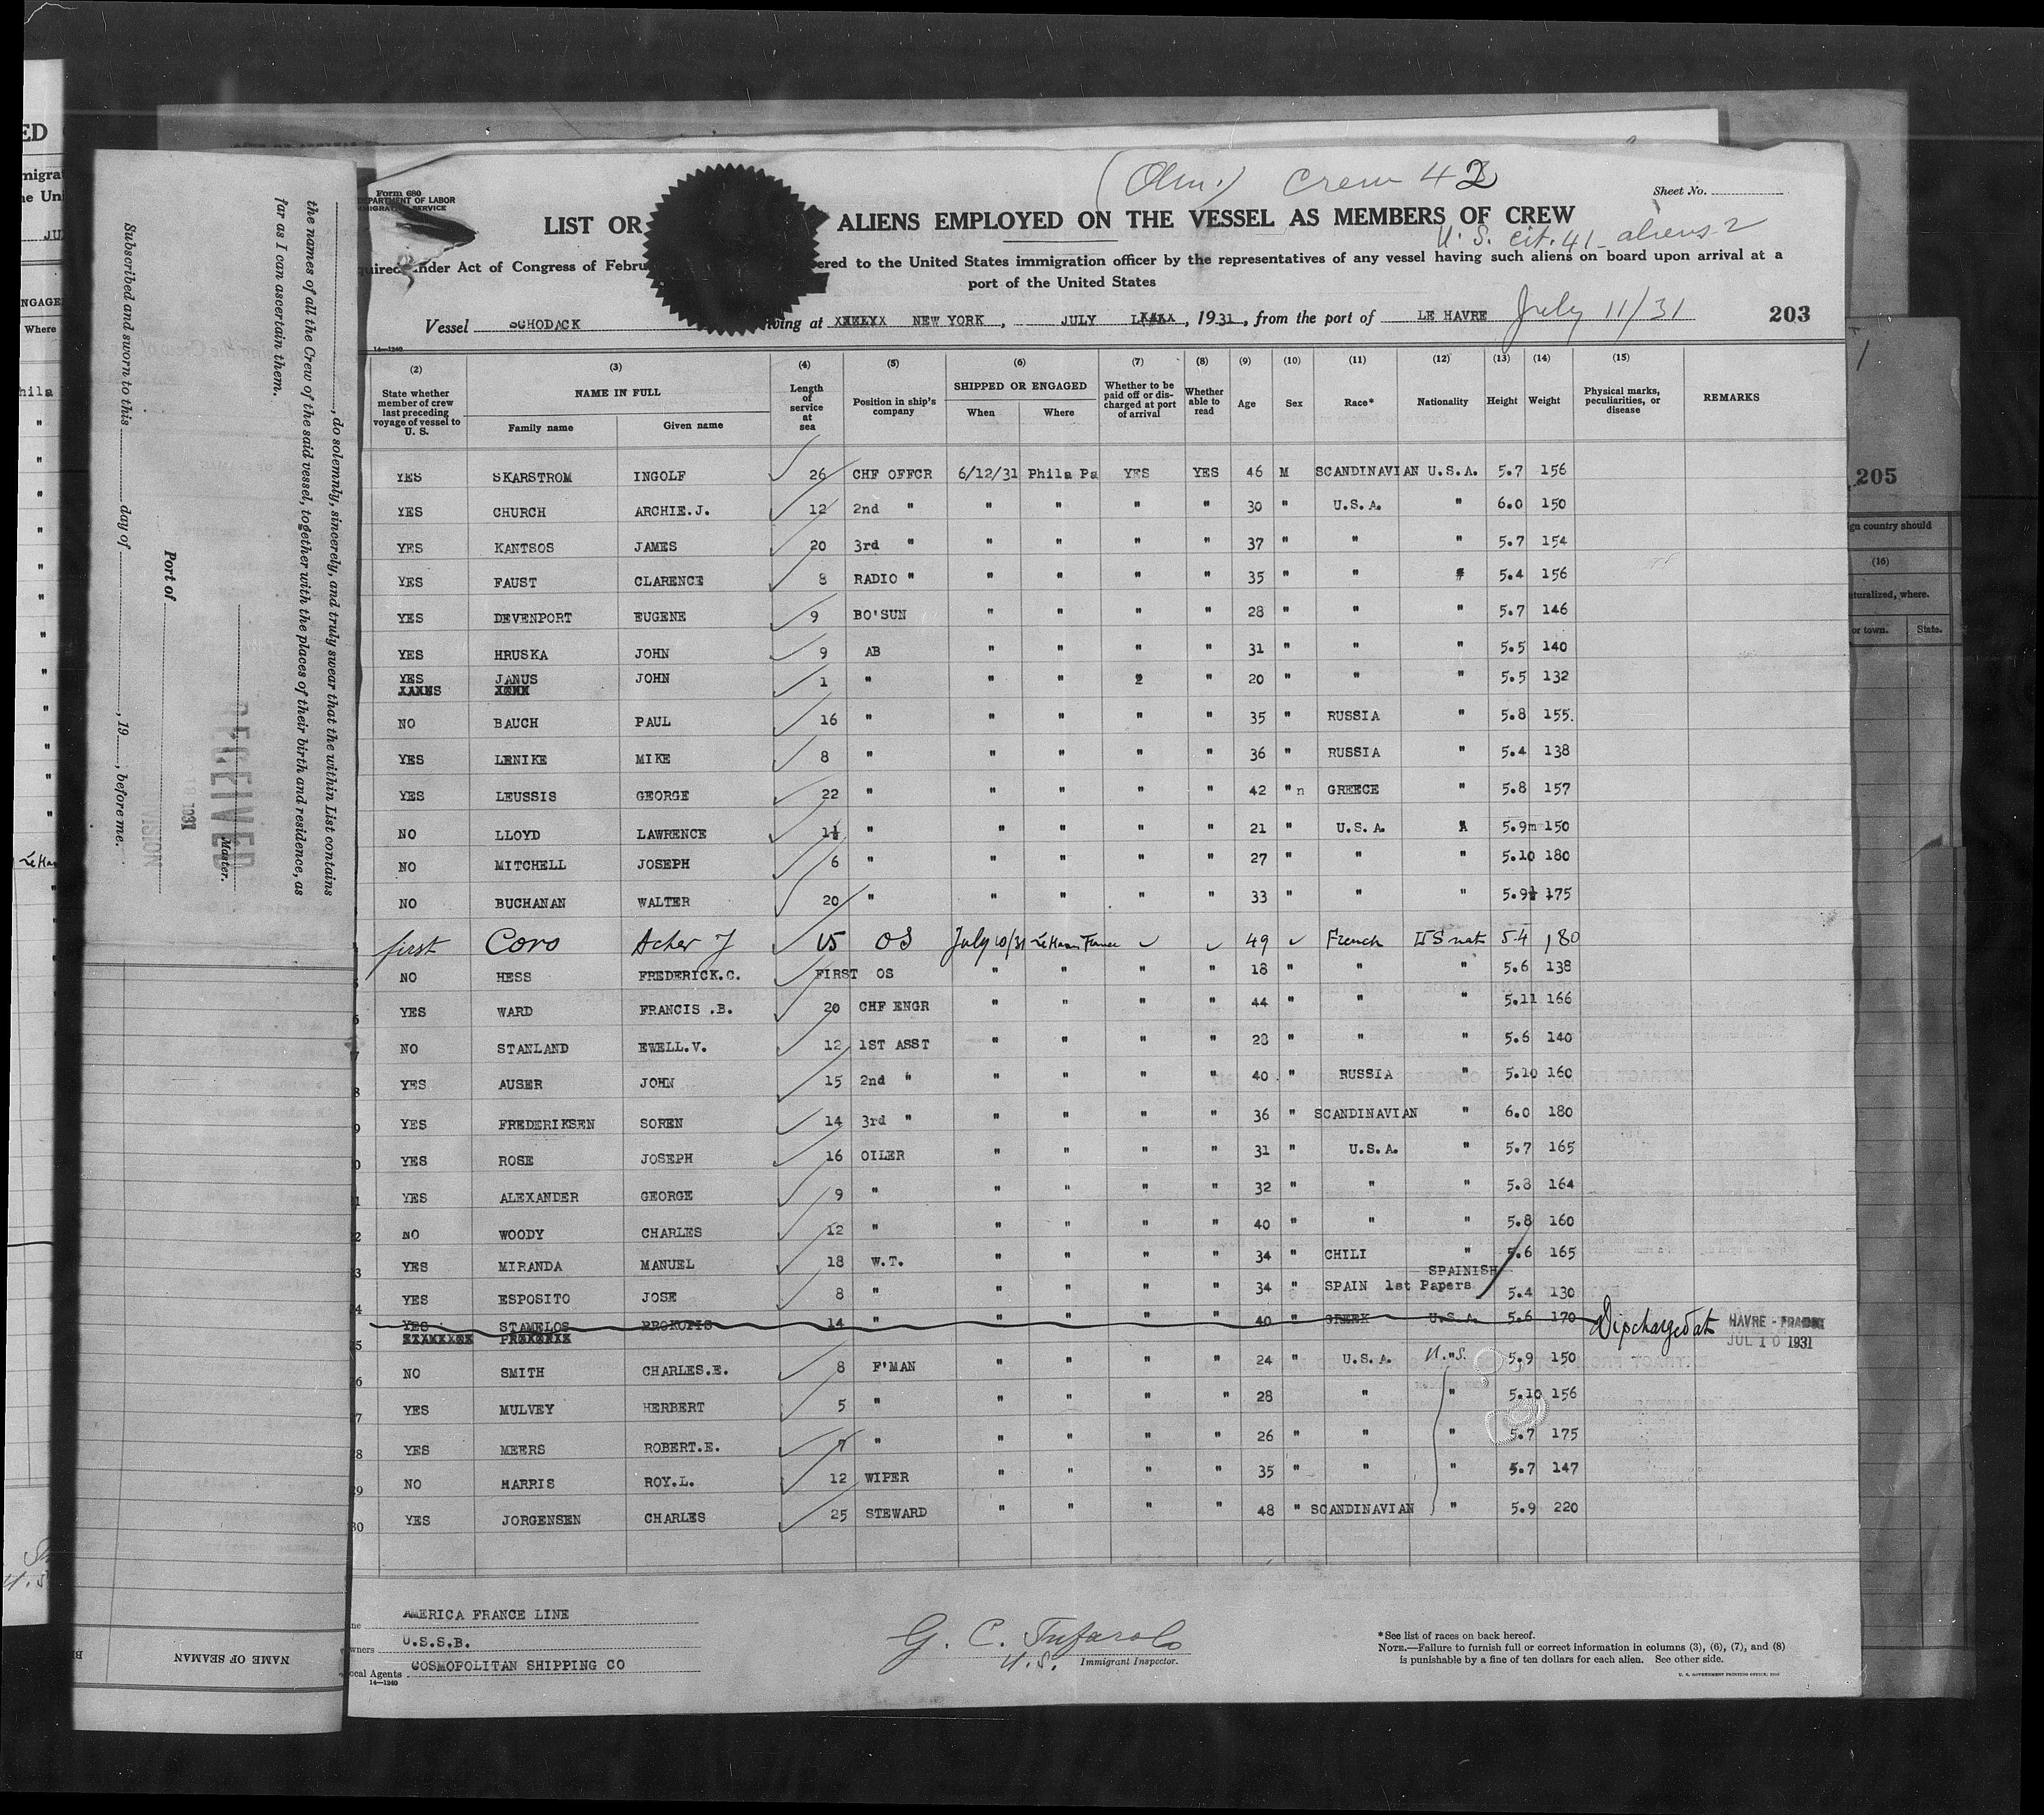 Form 680
DEPARTMENT OF LABOR
IMMIGRATION SERVICE
Crew 42
Sheet No.
LIST OR ALIENS EMPLOYED ON THE VESSEL AS MEMBERS OF CREW
U. S. cit. 41 - aliens 2
nder Act of Congress of Febru ered to the United States immigration officer by the representatives of any vessel having such aliens on board upon arrival at a
port of the United States
Vessel SCHODACK ving at NEW YORK, JULY , 1931, from the port of LE HAVRE July 11/31 203
14—1240
(2) (3) (4) (5) (6) (7) (8) (9) (10) (11) (12) (13) (14) (15)
State whether member of crew last preceding voyage of vessel to U. S. NAME IN FULL Family name Given name Length of service at sea Position in ship's company SHIPPED OR ENGAGED When Where Whether to be paid off or discharged at port of arrival Whether able to read Age Sex Race* Nationality Height Weight Physical marks, peculiarities, or disease REMARKS
YES SKARSTROM INGOLF 26 CHF OFFCR 6/12/31 Phila Pa YES YES 46 M SCANDINAVIAN U.S.A. 5.7 156
YES CHURCH ARCHIE.J. 12 2nd " " " " " 30 " U.S.A. " 6.0 150
YES KANTSOS JAMES 20 3rd " " " " " 37 " " " 5.7 154
YES FAUST CLARENCE 8 RADIO " " " " " 35 " " " 5.4 156
YES DEVENPORT EUGENE 9 BO'SUN " " " " 28 " " " 5.7 146
YES HRUSKA JOHN 9 AB " " " " 31 " " " 5.5 140
YES JANUS JOHN 1 " " " 2 " 20 " " " 5.5 132
NO BAUCH PAUL 16 " " " " " 35 " RUSSIA " 5.8 155.
YES LENIKE MIKE 8 " " " " " 36 " RUSSIA " 5.4 138
YES LEUSSIS GEORGE 22 " " " " " 42 " n GREECE " 5.8 157
NO LLOYD LAWRENCE 1½ " " " " " 21 " U.S.A. 5.9m 150
NO MITCHELL JOSEPH 6 " " " " " 27 " " " 5.10 180
NO BUCHANAN WALTER 20 " " " " " 33 " " " 5.9½ 175
first Coro Acher J 15 OS July 10/31 Le Havre France ✓ ✓ 49 ✓ French US nat 5.4 180
NO HESS FREDERICK.C. FIRST OS " " " " 18 " " " 5.6 138
YES WARD FRANCIS .B. 20 CHF ENGR " " " " 44 " " " 5.11 166
NO STANLAND EWELL.V. 12 1ST ASST " " " " 28 " " " 5.6 140
YES AUSER JOHN 15 2nd " " " " " 40 " RUSSIA " 5.10 160
YES FREDERIKSEN SOREN 14 3rd " " " " " 36 " SCANDINAVIAN " 6.0 180
YES ROSE JOSEPH 16 OILER " " " " 31 " U.S.A. " 5.7 165
YES ALEXANDER GEORGE 9 " " " " " 32 " " " 5.8 164
NO WOODY CHARLES 12 " " " " " 40 " " " 5.8 160
YES MIRANDA MANUEL 18 W.T. " " " " 34 " CHILI " 5.6 165
YES ESPOSITO JOSE 8 " " " " " 34 " SPAIN 1st Papers SPAINISH 5.4 130
YES STAMELOS PROKOPIS 14 " " " " " 40 " GREEK U.S.A. 5.6 170 Dischargedat HAVRE - FRANCE JUL 10 1931
NO SMITH CHARLES.E. 8 F'MAN " " " " 24 " U.S.A. U.S. 5.9 150
YES MULVEY HERBERT 5 " " " " " 28 " " 5.10 156
YES MEERS ROBERT.E. 7 " " " " " 26 " " " 5.7 175
NO HARRIS ROY.L. 12 WIPER " " " " 35 " " " 5.7 147
YES JORGENSEN CHARLES 25 STEWARD " " " " 48 " SCANDINAVIAN " 5.9 220
AMERICA FRANCE LINE
U.S.S.B.
Local Agents COSMOPOLITAN SHIPPING CO
14—1240
G. C. Tufarolo
U.S. Immigrant Inspector.
*See list of races on back hereof.
NOTE.—Failure to furnish full or correct information in columns (3), (6), (7), and (8)
is punishable by a fine of ten dollars for each alien. See other side.
U. S. GOVERNMENT PRINTING OFFICE
, do solemnly, sincerely, and truly swear that the within List contains
the names of all the Crew of the said vessel, together with the places of their birth and residence, as
far as I can ascertain them.
Master.
RECEIVED
1931
Port of
Subscribed and sworn to this day of , 19 , before me.
NAME OF SEAMAN
205
gn country should
(16)
aturalized, where.
or town. State.
ED
migrat
he Unit
NGAGE
Where
hila